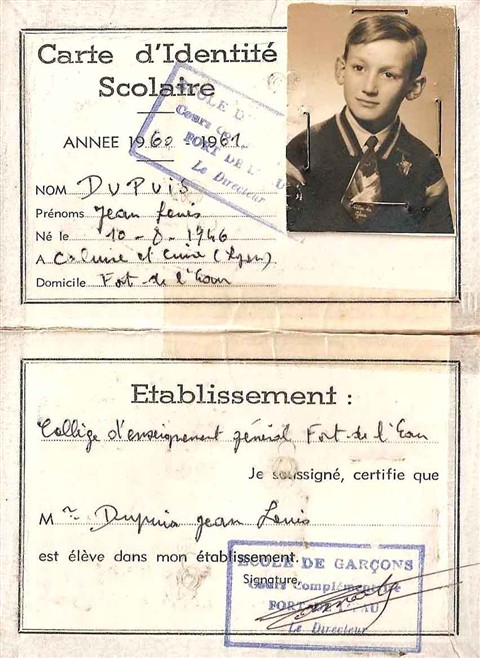 Carte d'Identité
Scolaire
ANNEE 1960 1961
ECOLE D
FORT DE L'
Le Directeur
NOM DUPUIS
Prénoms Jean Louis
Né le 10-8-1946
A Caluire et Cuire (Lyon)
Domicile Fort-de l'Eau
Etablissement :
Collège d'enseignement général Fort-de l'Eau
Je soussigné, certifie que
M r Dupuis Jean Louis
est élève dans mon établissement.
Signature,
ECOLE DE GARÇONS
Cours Complémentaire
FORT DE L'EAU
Le Directeur